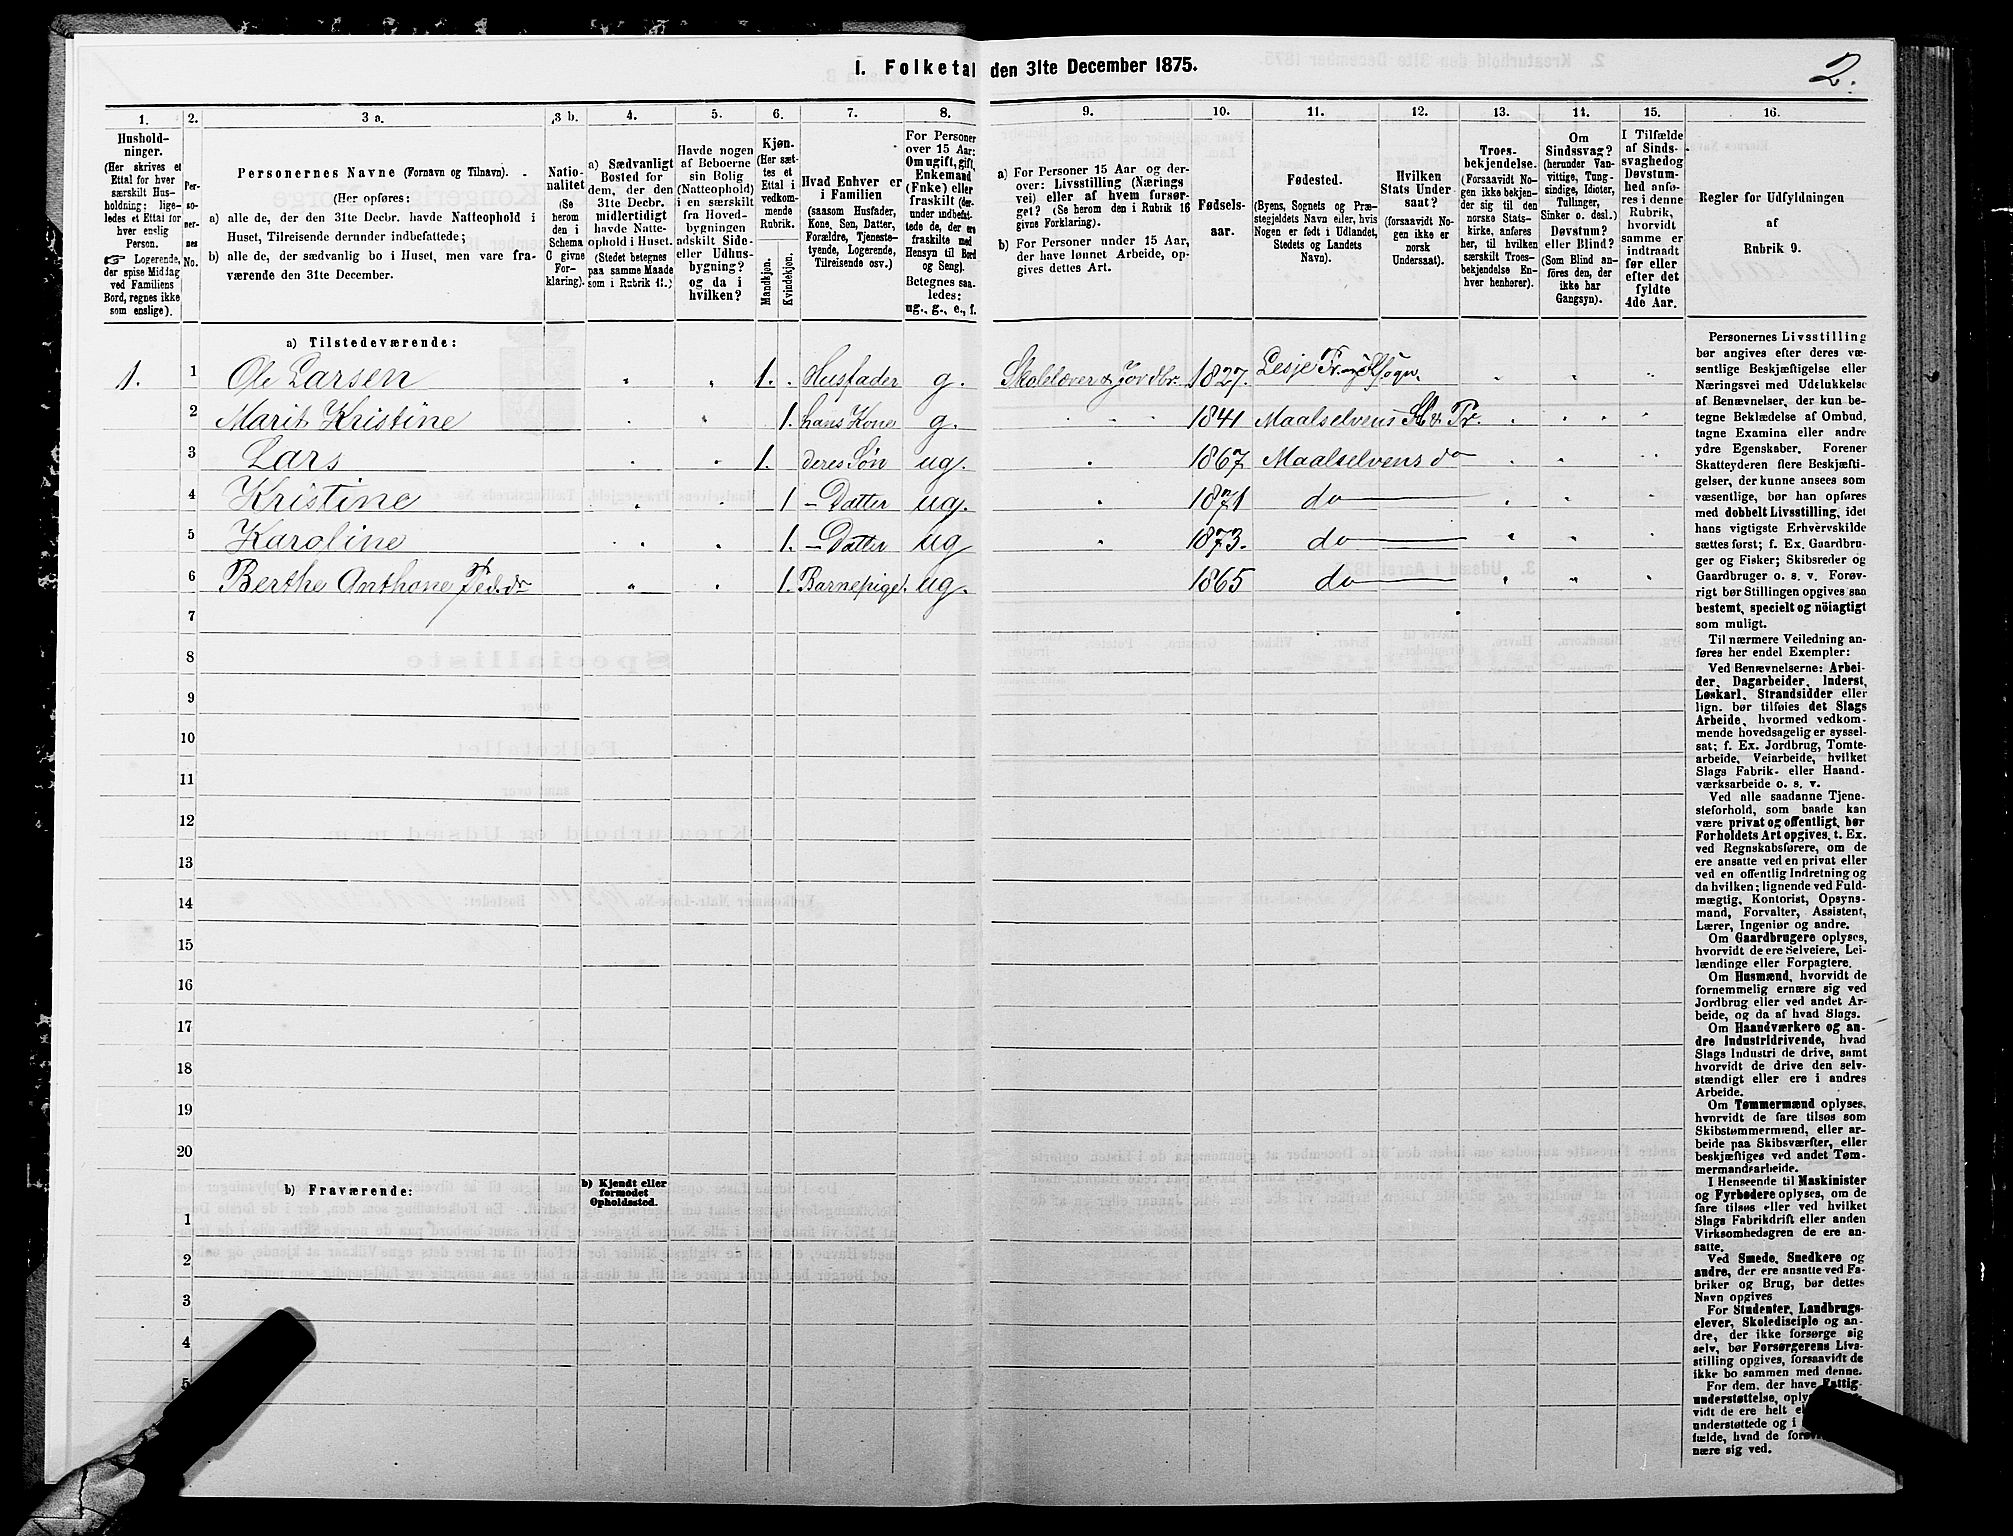 I. Folketal den 31te December 1875.
2.
1. 2. 3 a. 3 b. 4. 5. 6. 7. 8. 9. 10. 11. 12. 13. 14. 15. 16.
Hushold-
ninger.
(Her skrives et
Ettal for hver
særskilt Hus-
holdning; lige-
ledes et Ettal for
hver enslig
Person.
☞ Logerende,
der spise Middag
ved Familiens
Bord, regnes ikke
som enslige).
Per-
so-
ner-
nes
No.
Personernes Navne (Fornavn og Tilnavn).
(Her opføres:
a) alle de, der den 31te Decbr. havde Natteophold i
Huset, Tilreisende derunder indbefattede;
b) alle de, der sædvanlig bo i Huset, men vare fra-
værende den 31te December.
Natio-
nalitet
(Se
herom
den i
Schema
C givne
For-
klaring).
a) Sædvanligt
Bosted for
dem, der den
31te Decbr.
midlertidigt
havde Natte-
ophold i Huset.
(Stedet betegnes
paa samme Maade
som i Rubrik 11.)
Havde nogen
af Beboerne
sin Bolig
(Natteophold)
i en særskilt
fra Hoved-
bygningen
adskilt Side-
eller Udhus-
bygning?
og da i
hvilken?
Kjøn.
(Her sæt-
tes et
Ettal i
vedkom-
mende
Rubrik.
Mandkjøn.
Kvindekjøn.
Hvad Enhver er
i Familien
(saasom Husfader,
Kone, Søn, Datter,
Forældre, Tjeneste-
tyende, Logerende,
Tilreisende osv.)
For Personer
over 15 Aar:
Om ugift, gift,
Enkemand
(Enke) eller
fraskilt (der-
under indbefat-
tede de, der ere
fraskilte med
Hensyn til Bord
og Seng).
Betegnes saa-
ledes:
ug., g., e., f.
a) For Personer 15 Aar og der-
over: Livsstilling (Nærings
vei) eller af hvem forsør-
get? (Se herom den i Rubrik 16
givne Forklaring).
b) For Personer under 15 Aar,
der have lønnet Arbeide, op-
gives dettes Art.
Fødsels-
aar.
Fødested.
(Byens, Sognets og Præ-
stegjeldets Navn eller, hvis
Nogen er født i Udlandet,
Stedets og Landets
Navn).
Hvilken
Stats Under
saat?
(forsaavidt No-
gen ikke er
norsk
Undersaat).
Troes-
bekjendelse.
(Forsaavidt No-
gen ikke bekjen-
der sig til den
norske Stats-
kirke, anføres
her, til hvilken
særskilt Troes-
bekjendelse En-
hver henhører).
Om
Sindssvag?
(herunder Van-
vittige, Tung-
sindige, Idioter,
Tullinger,
Sinker o. desl.)
Døvstum?
eller Blind?
(Som Blind an-
føres den, der
ikke har
Gangsyn).
I Tilfælde
af Sinds-
svaghed og
Døvstum-
hed anfø-
res i denne
Rubrik,
hvorvidt
samme er
indtraadt
før eller
efter det
fyldte
4de Aar.
Regler for Udfyldningen
af
Rubrik 9.
a) Tilstedeværende:
1. 1 Ole Larsen 1. Husfader g. Skolelærer & Jordbr. 1827. Lesje Pr. og Sogn.
2 Marit Kristine 1. hans Kone g. 1841 Maalselvens S. & Pr.
3 Lars 1. deres Søn ug. 1867 Maalselvens do
4 Kristine 1 – Datter ug. 1871 do
5 Karoline 1. – Datter ug 1873. do
6 Berthe Anthone Ped.dr 1. Barnepige. ug. 1865 do
7
8
9
10
11
12
13
14
15
16
17
18
19
20
b) Fraværende:
b) Kjendt eller
formodet
Opholdssted.
1
2
3
4
5
Personernes Livsstilling
bør angives efter deres væ-
sentlige Beskjæftigelse eller
Næringsvei med Udelukkelse
af Benævnelser, der kun be-
tegne Beklædelse af Ombud,
tagne Examina eller andre
ydre Egenskaber. Forener
Skatteyderen flere Beskjæfti-
gelser, der kunne ansees som
væsentlige, bør han opføres
med dobbelt Livsstilling, idet
hans vigtigste Erhvervskilde
sættes først; f. Ex. Gaardbru-
ger og Fisker; Skibsreder og
Gaardbruger o. s. v. Forøv-
rigt bør Stillingen opgives saa
bestemt, specielt og nöiagtigt
som muligt.
Til nærmere Veiledning an-
føres her endel Exempler:
Ved Benævnelserne: Arbei-
der, Dagarbeider, Inderst,
Løskarl, Strandsidder eller
lign. bør tilføies det Slags
Arbeide, hvormed vedkom-
mende hovedsagelig er syssel-
sat; f. Ex. Jordbrug, Tomte-
arbeide, Veiarbeide, hvilket
Slags Fabrik- eller Haand-
værksarbeide o. s. v.
Ved alle saadanne Tjene-
steforhold, som baade kan
være privat og offentligt, bør
Forholdets Art opgives, t. Ex.
ved Regnskabsførere, om de
ere ansatte ved en privat eller
ved en offentlig Indretning og
da hvilken; lignende ved Fuld-
mægtig, Kontorist, Opsyns-
mand, Forvalter, Assistent,
Lærer, Ingeniør og andre.
Om Gaardbrugere oplyses,
hvorvidt de ere Selveiere, Lei-
lændinge eller Forpagtere.
Om Husmænd, hvorvidt de
fornemmelig ernære sig ved
Jordbrug eller ved andet Ar-
beide, og da af hvad Slags.
Om Haandværkere og an-
dre Industridrivende, hvad
Slags Industri de drive, samt
hvorvidt de drive den selv-
stændigt eller ere i andres
Arbeide.
Om Tømmermænd oplyses,
hvorvidt de fare tilsøs som
Skibstømmermænd, eller ar-
beide paa Skibsværfter, eller
beskjæftiges ved andet Tøm-
mermandsarbeide.
I Henseende til Maskinister
og Fyrbødere oplyses, om de
fare tilsøs eller ved hvilket
Slags Fabrikdrift eller anden
Virksomhedsgren de ere an-
satte.
Ved Smede, Snedkere og
andre, der ere ansatte ved Fa-
briker og Brug, bør dettes
Navn opgives
For Studenter, Landbrugs-
elever, Skoledisciple og an-
dre, der ikke forsørge sig
selv, bør Forsørgerens Livs-
stilling opgives, forsaavidt de
ikke bo sammen med denne.
For dem, der have Fattig-
understøttelse, oply
vidt de ere helt e
understøttede og i
fælde, hvad de
nære sig ved.